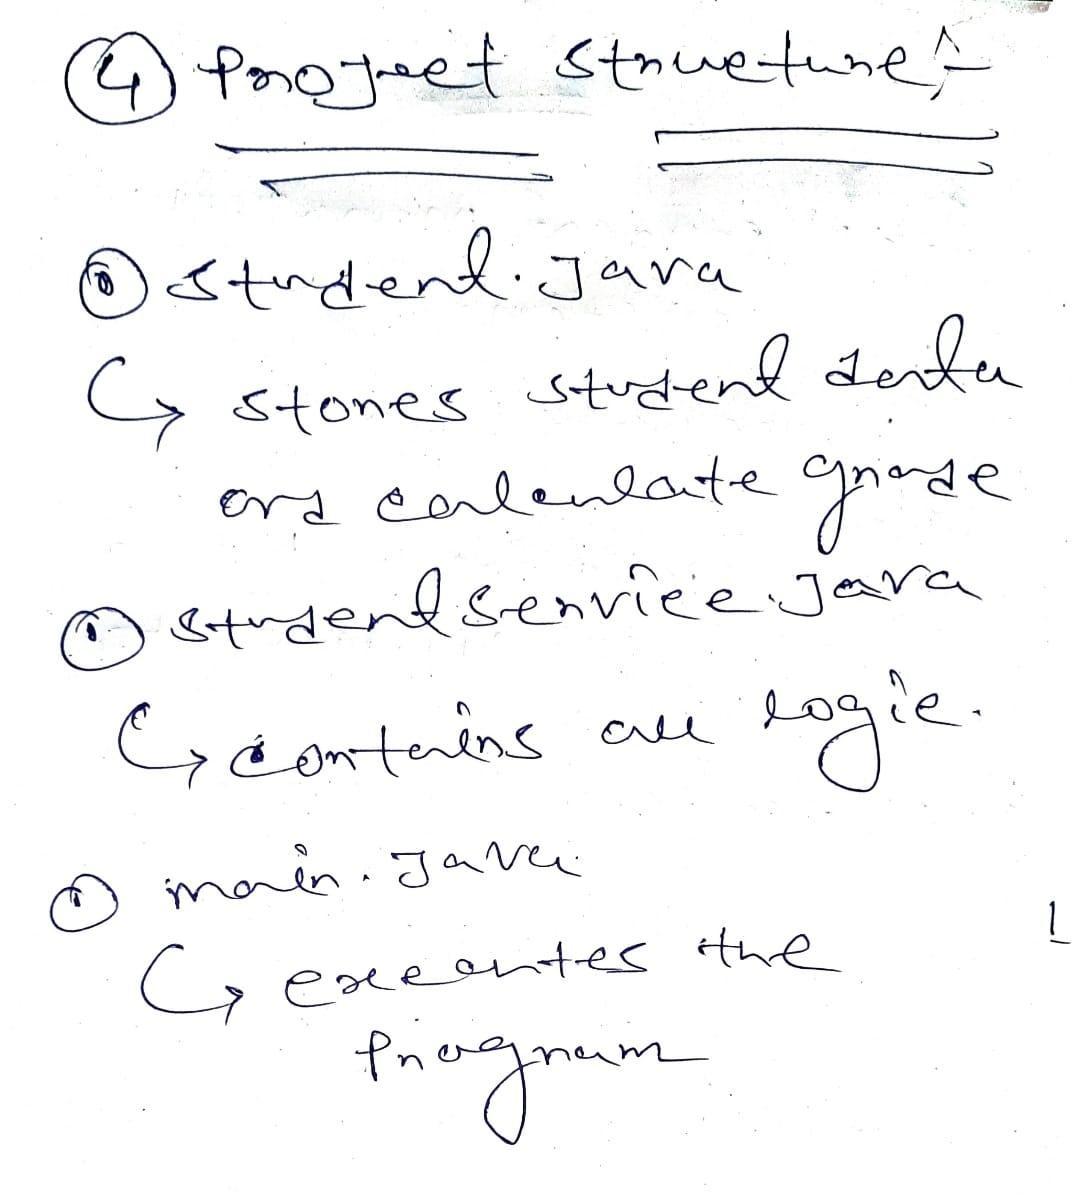 ④ Project Structure:-
① Student.Java
↳ stores student data
and calculate grade
① StudentService.Java
↳ contains all logic.
① main.Java
↳ executes the
Program